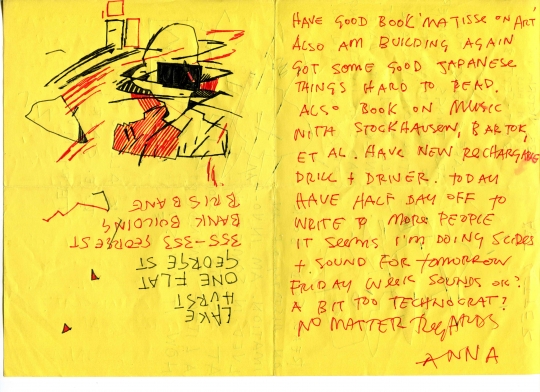 HAVE GOOD BOOK 'MATISSE ON ART'
ALSO AM BUILDING AGAIN
GOT SOME GOOD JAPANESE
THINGS HARD TO READ.
ALSO BOOK ON MUSIC
WITH STOCKHAUSEN, BARTOK,
ET AL. HAVE NEW RECHARGABLE
DRILL + DRIVER. TODAY
HAVE HALF DAY OFF TO
WRITE TO MORE PEOPLE
IT SEEMS I'M DOING SLIDES
+ SOUND FOR TOMORROW
FRIDAY WEEK SOUNDS OK?
A BIT TOO TECHNOCRAT?
NO MATTER REGARDS
ANNA
LAKE
HURST
ONE FLAT
GEORGE ST
GEORGE ST
BANK BUILDING
BRISBANE